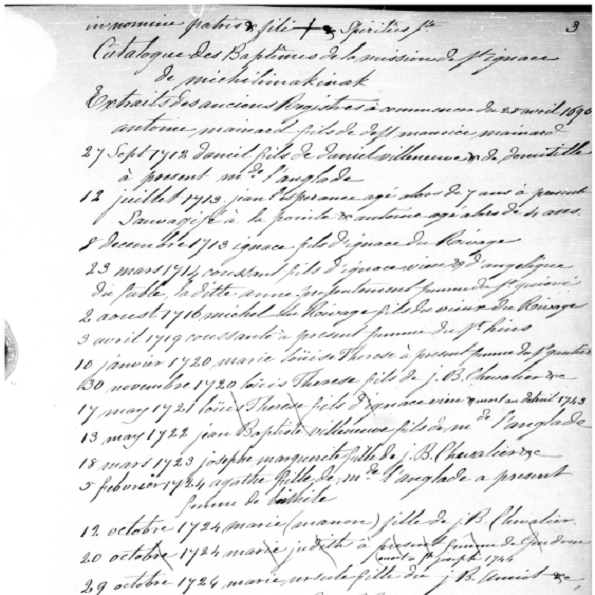 in nomine patris & filii + & Spiritûs Sti 3
Catalogue des Baptêmes de la mission de St ignace
de michilimakinak
Extraits des anciens Registres à commencer du 28 avril 1695
antoine mainard fils de deft maurice mainard
27 Sept 1712 daniel fils de daniel villeneuve & de domitille
à present mde l'anglade
12 juillet 1713 jean l'esperance agé alors de 7 ans à present
Sauvagifé à la pointe & antoine agé alors de 4 ans.
8 decembre 1713 ignace fils d'ignace du Rivage
23 mars 1714 constant fils d'ignace vieux & d'angelique
du Sable, laditte anne presentement femme du Sr
2 aoust 1716 michel du Rivage fils du vieux du Rivage
3 avril 1719 constante à present femme du Sr hins
10 janvier 1720 marie loüise Therese à present femme du Sr gautier
30 novembre 1720 loüis Therese fils de J. B. Chevalier &c
17 may 1721 loüis Therese fils d'ignace vieux & mort au detroit 1743
13 may 1722 jean Baptiste villeneuve fils de mde l'anglade
18 mars 1723 josephe marguerete fille de J. B. Chevalier &c
5 febvrier 1724 agathe fille de mde l'anglade a present
femme de
12 octobre 1724 marie (manon) fille de J. B. Chevalier.
20 octobre 1724 marie judith à presente femme de
morte à St joseph 1744
29 octobre 1724 marie ursule fille de J. B. amiot &c